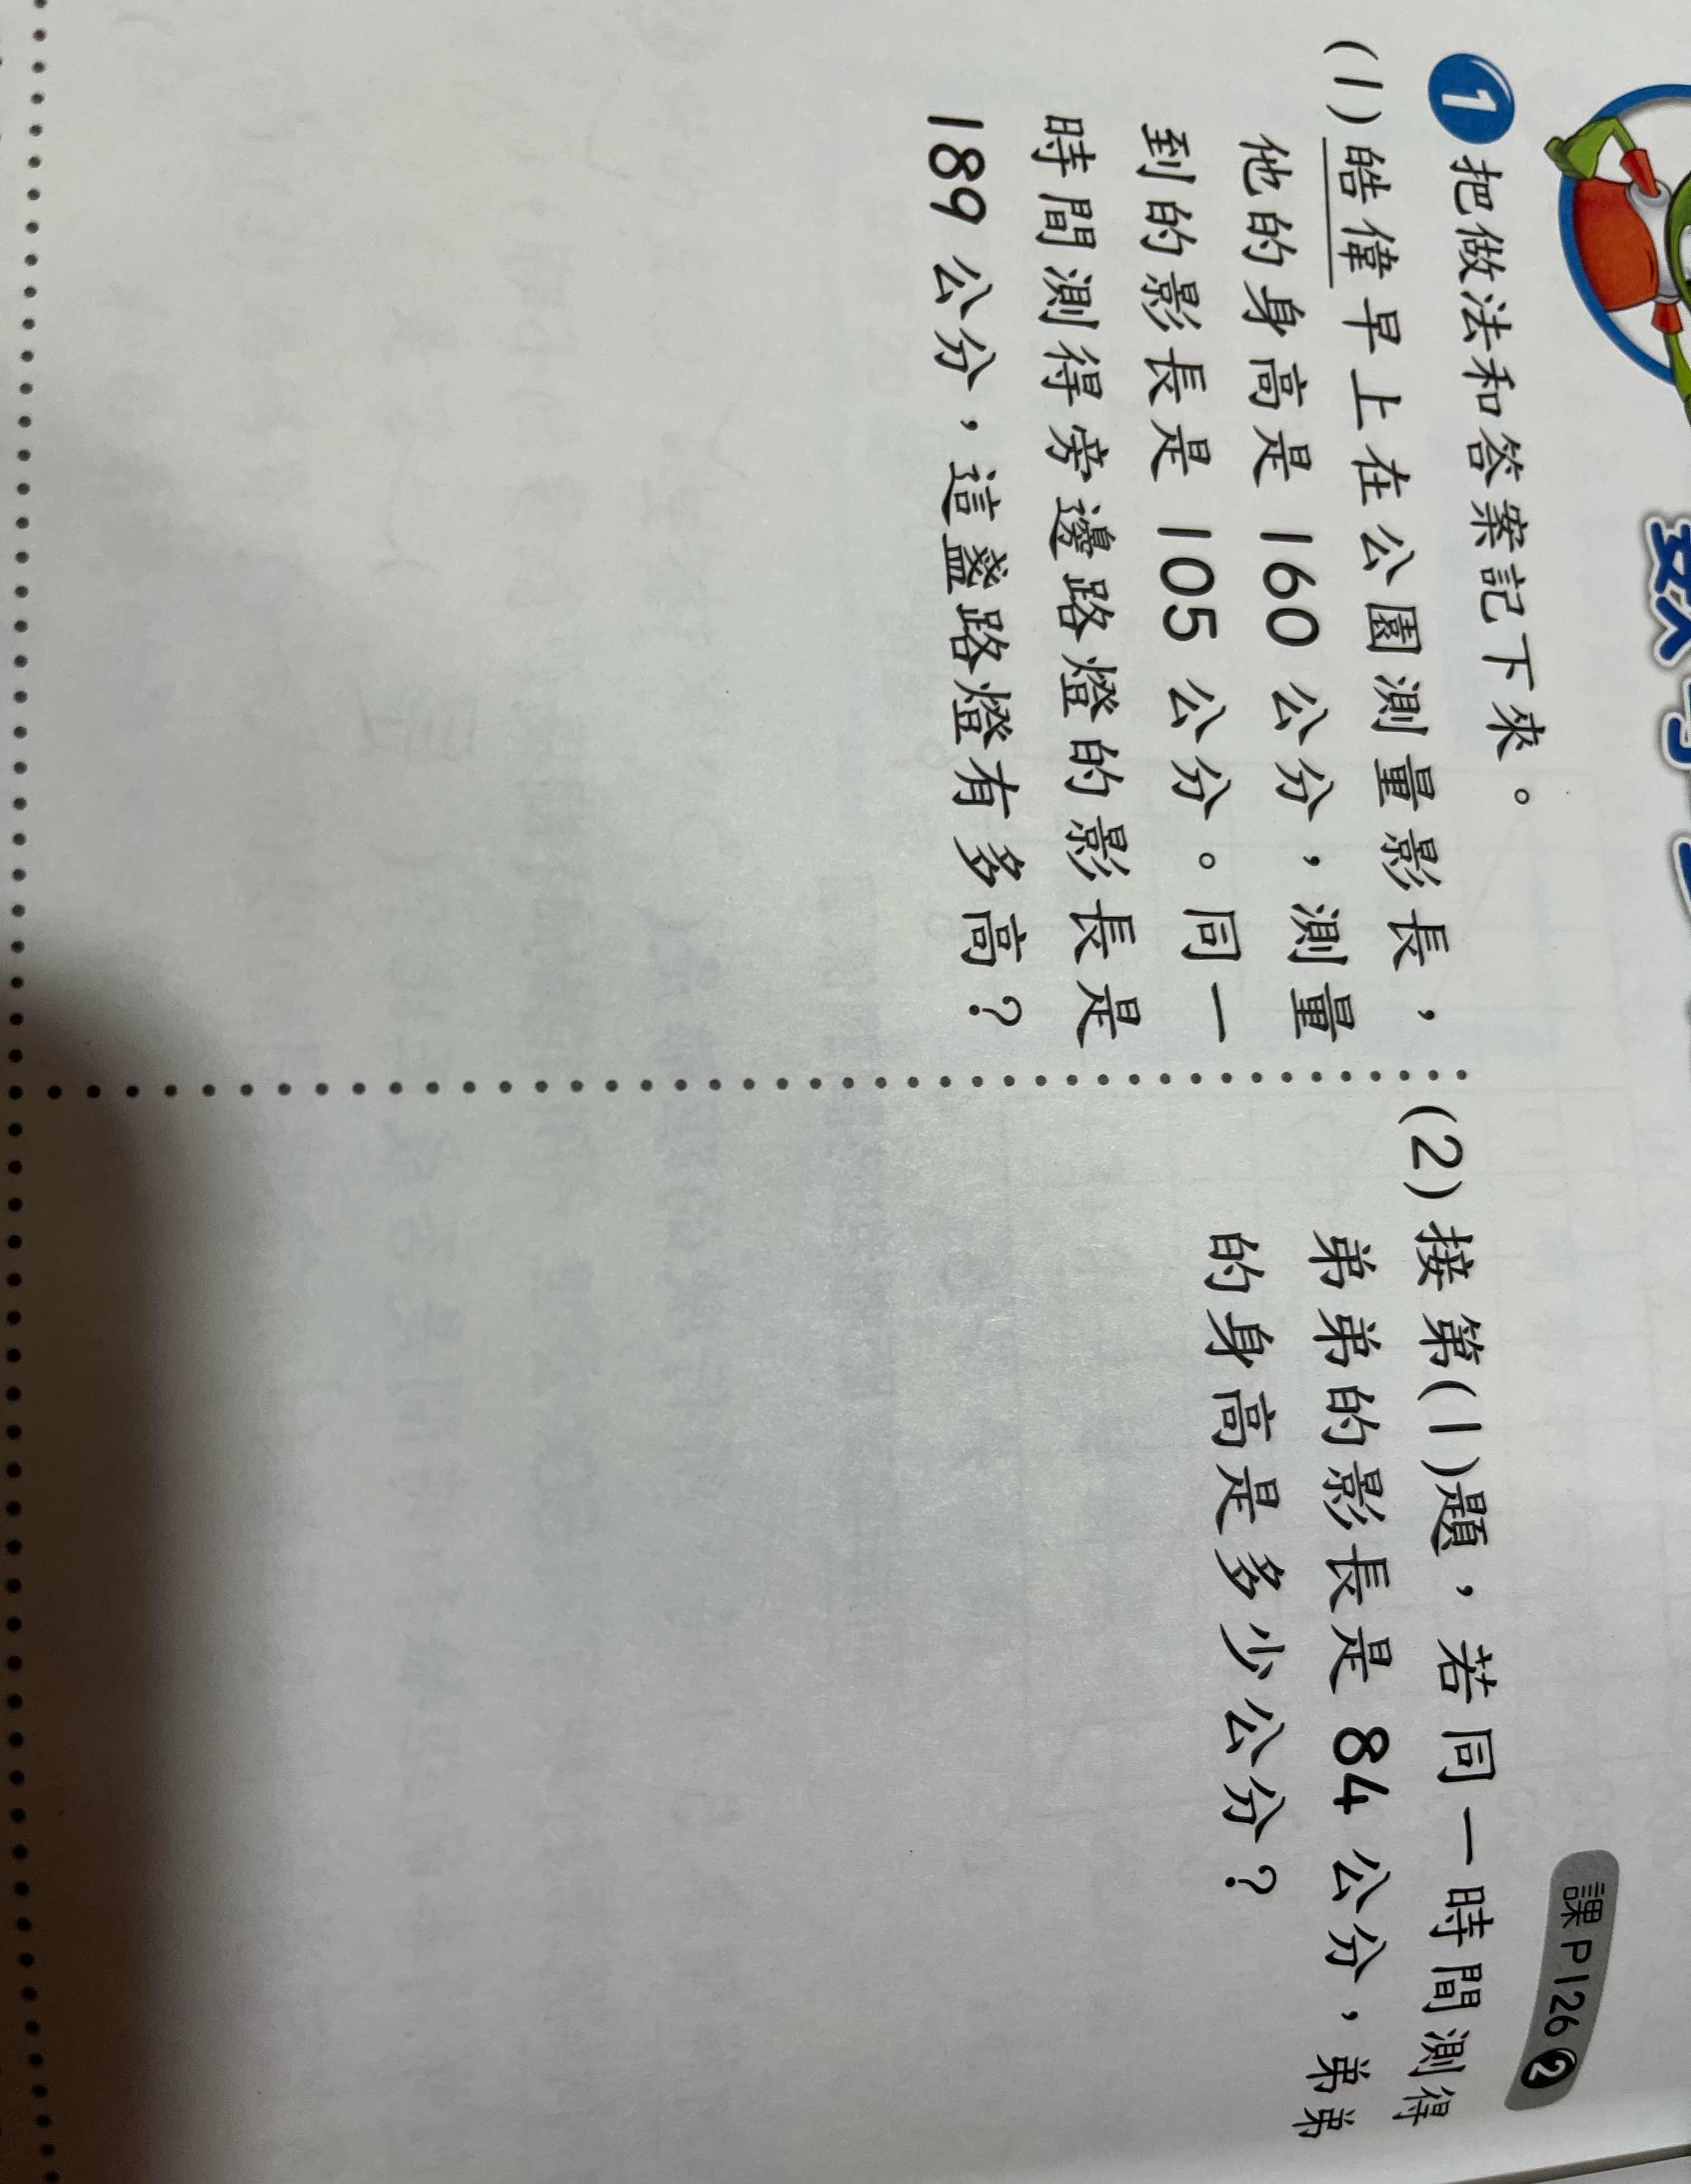 課 P126 2
1 把做法和答案記下來。
(1) 皓偉早上在公園測量影長，
他的身高是 160 公分，測量
到的影長是 105 公分。同一
時間測得旁邊路燈的影長是
189 公分，這盞路燈有多高？
(2) 接第(1)題，若同一時間測得
弟弟的影長是 84 公分，弟弟
的身高是多少公分？